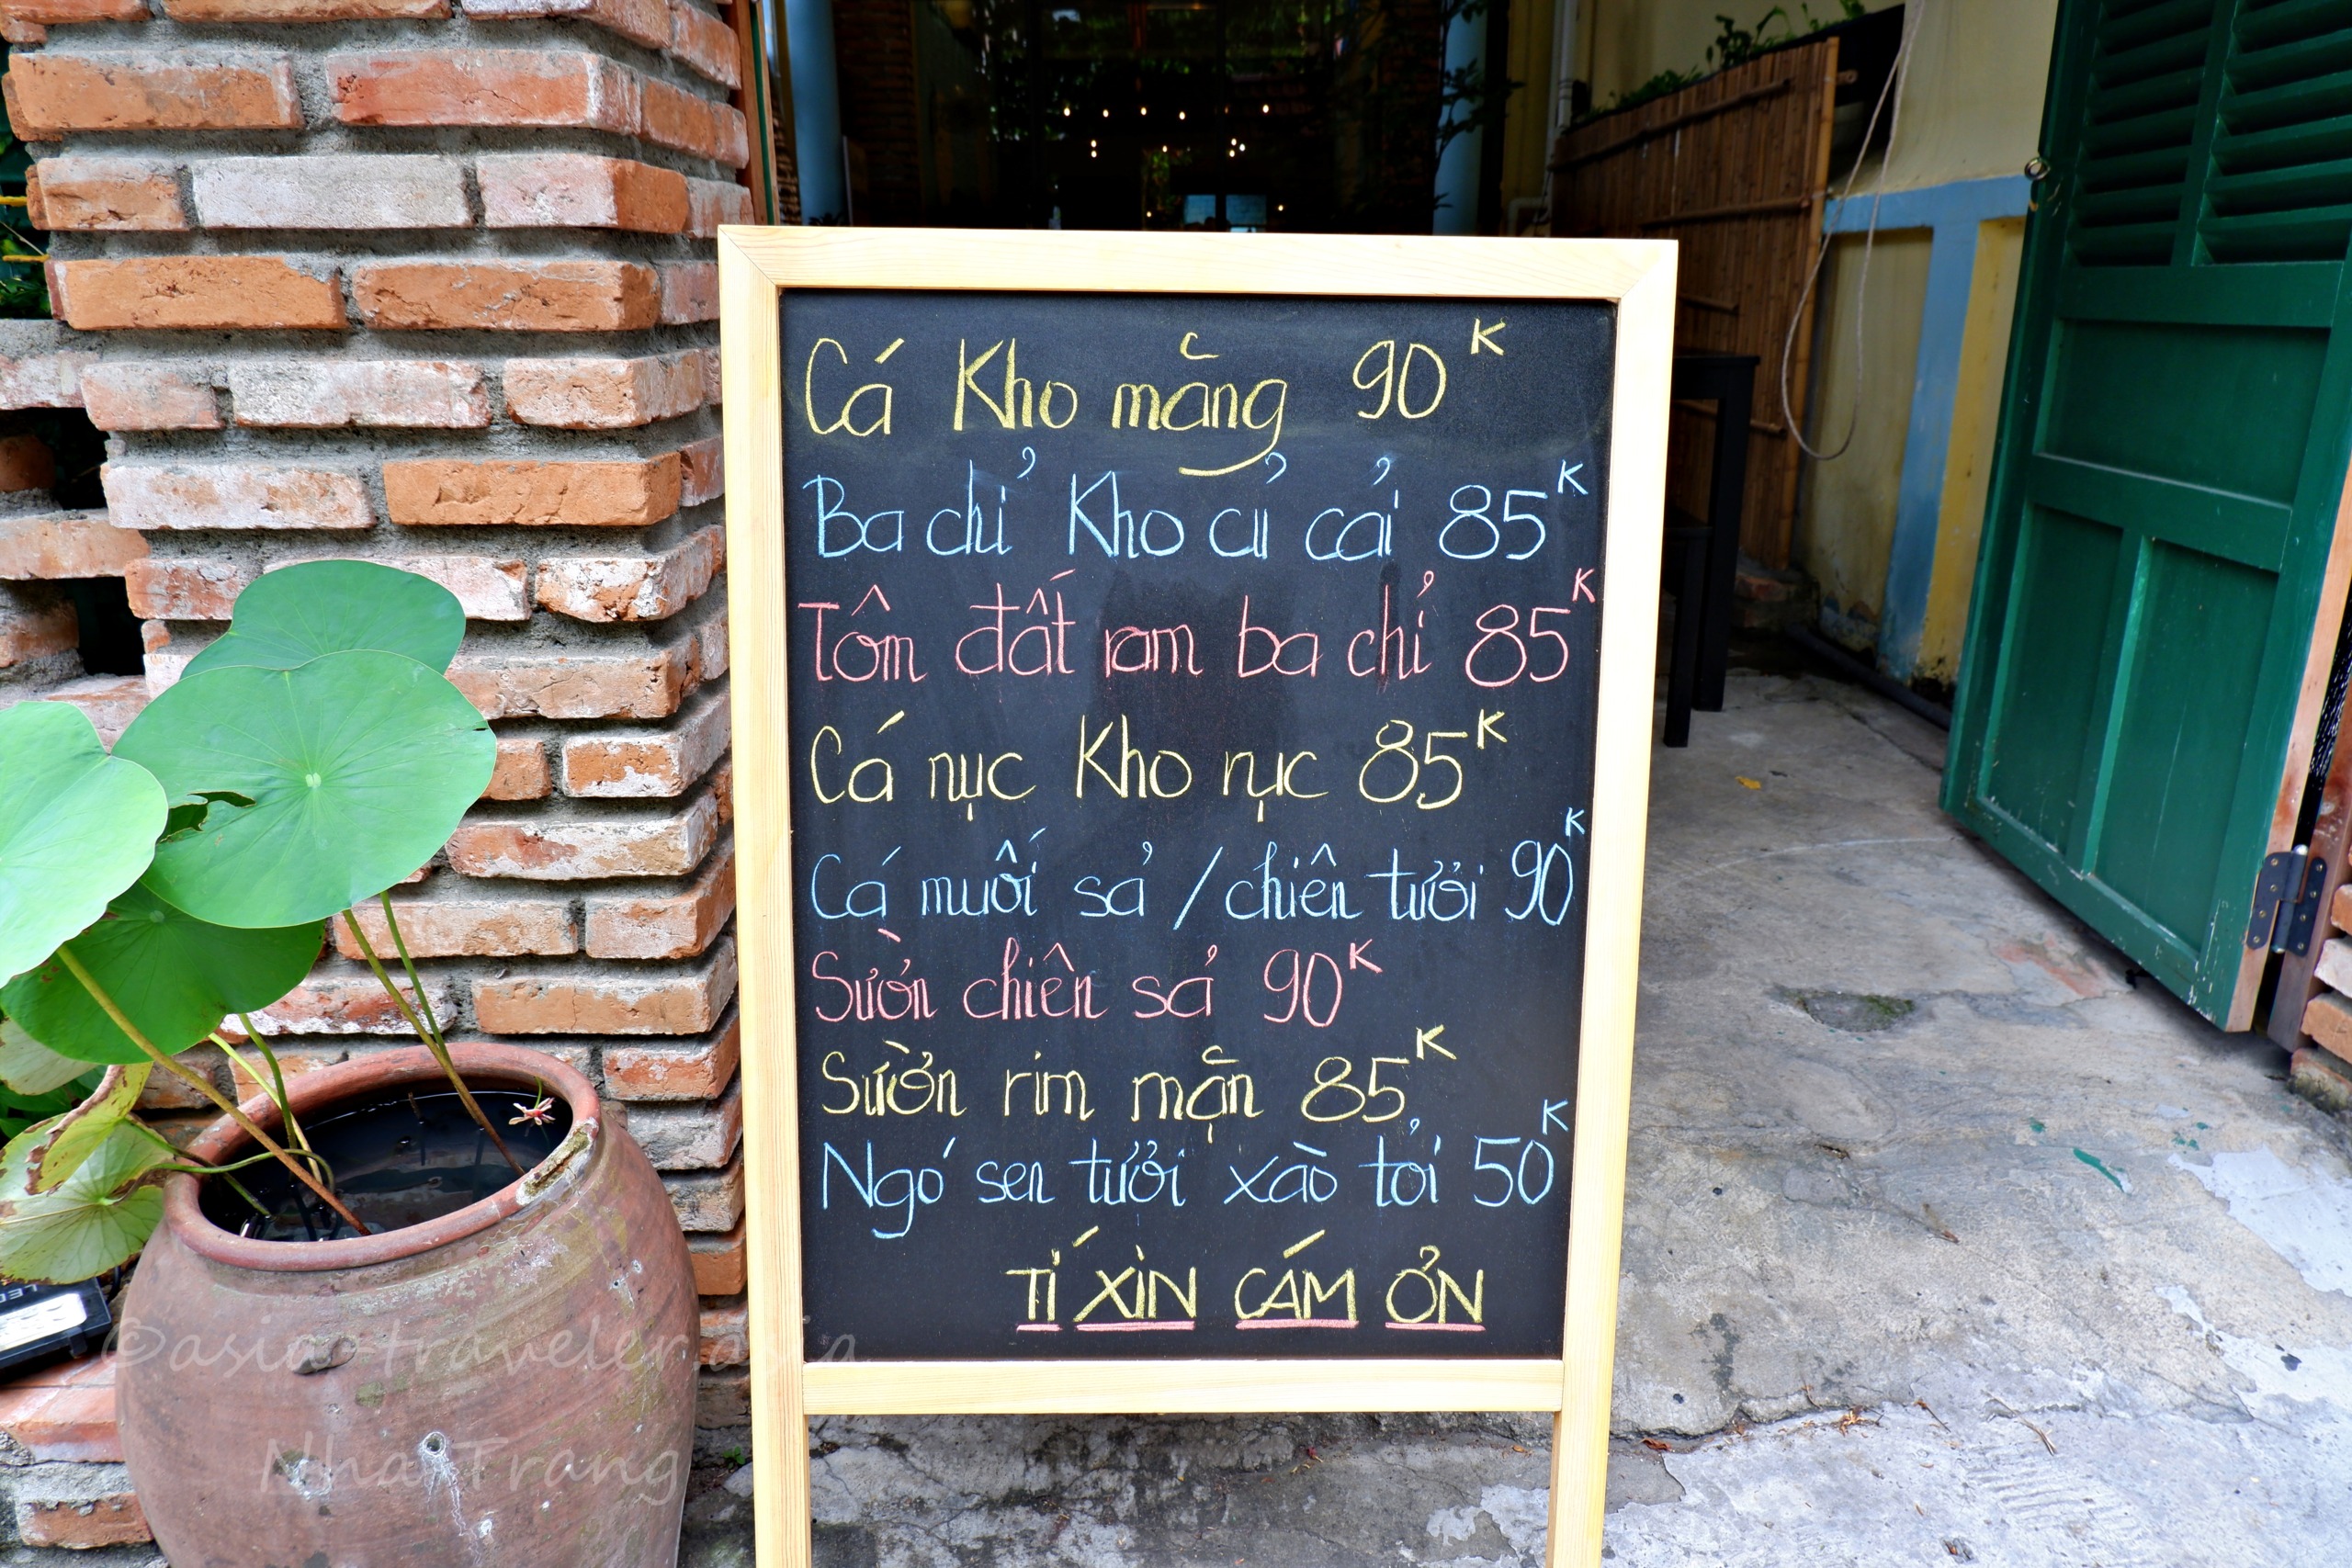 Cá Kho măng 90K
Ba chỉ Kho củ cải 85K
Tôm đất ram ba chỉ 85K
Cá nục Kho rục 85K
Cá muối sả / chiên tưởi 90K
Sườn chiên sả 90K
Sườn rim mặn 85K
Ngó sen tưởi xào tỏi 50K
TÍ XÌN CÁM ƠN
©asia-traveler.asia
Nha Trang